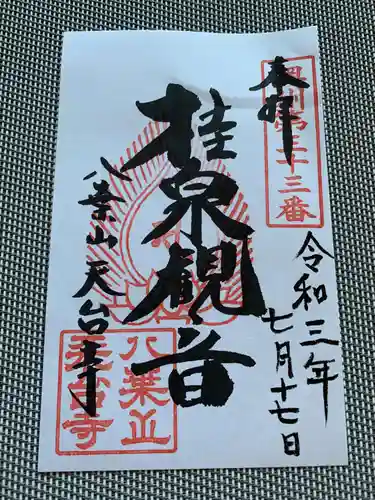 奉拝
令和三年
七月十七日
桂泉観音
八葉山天台寺
第三十三番
八葉山
天台寺